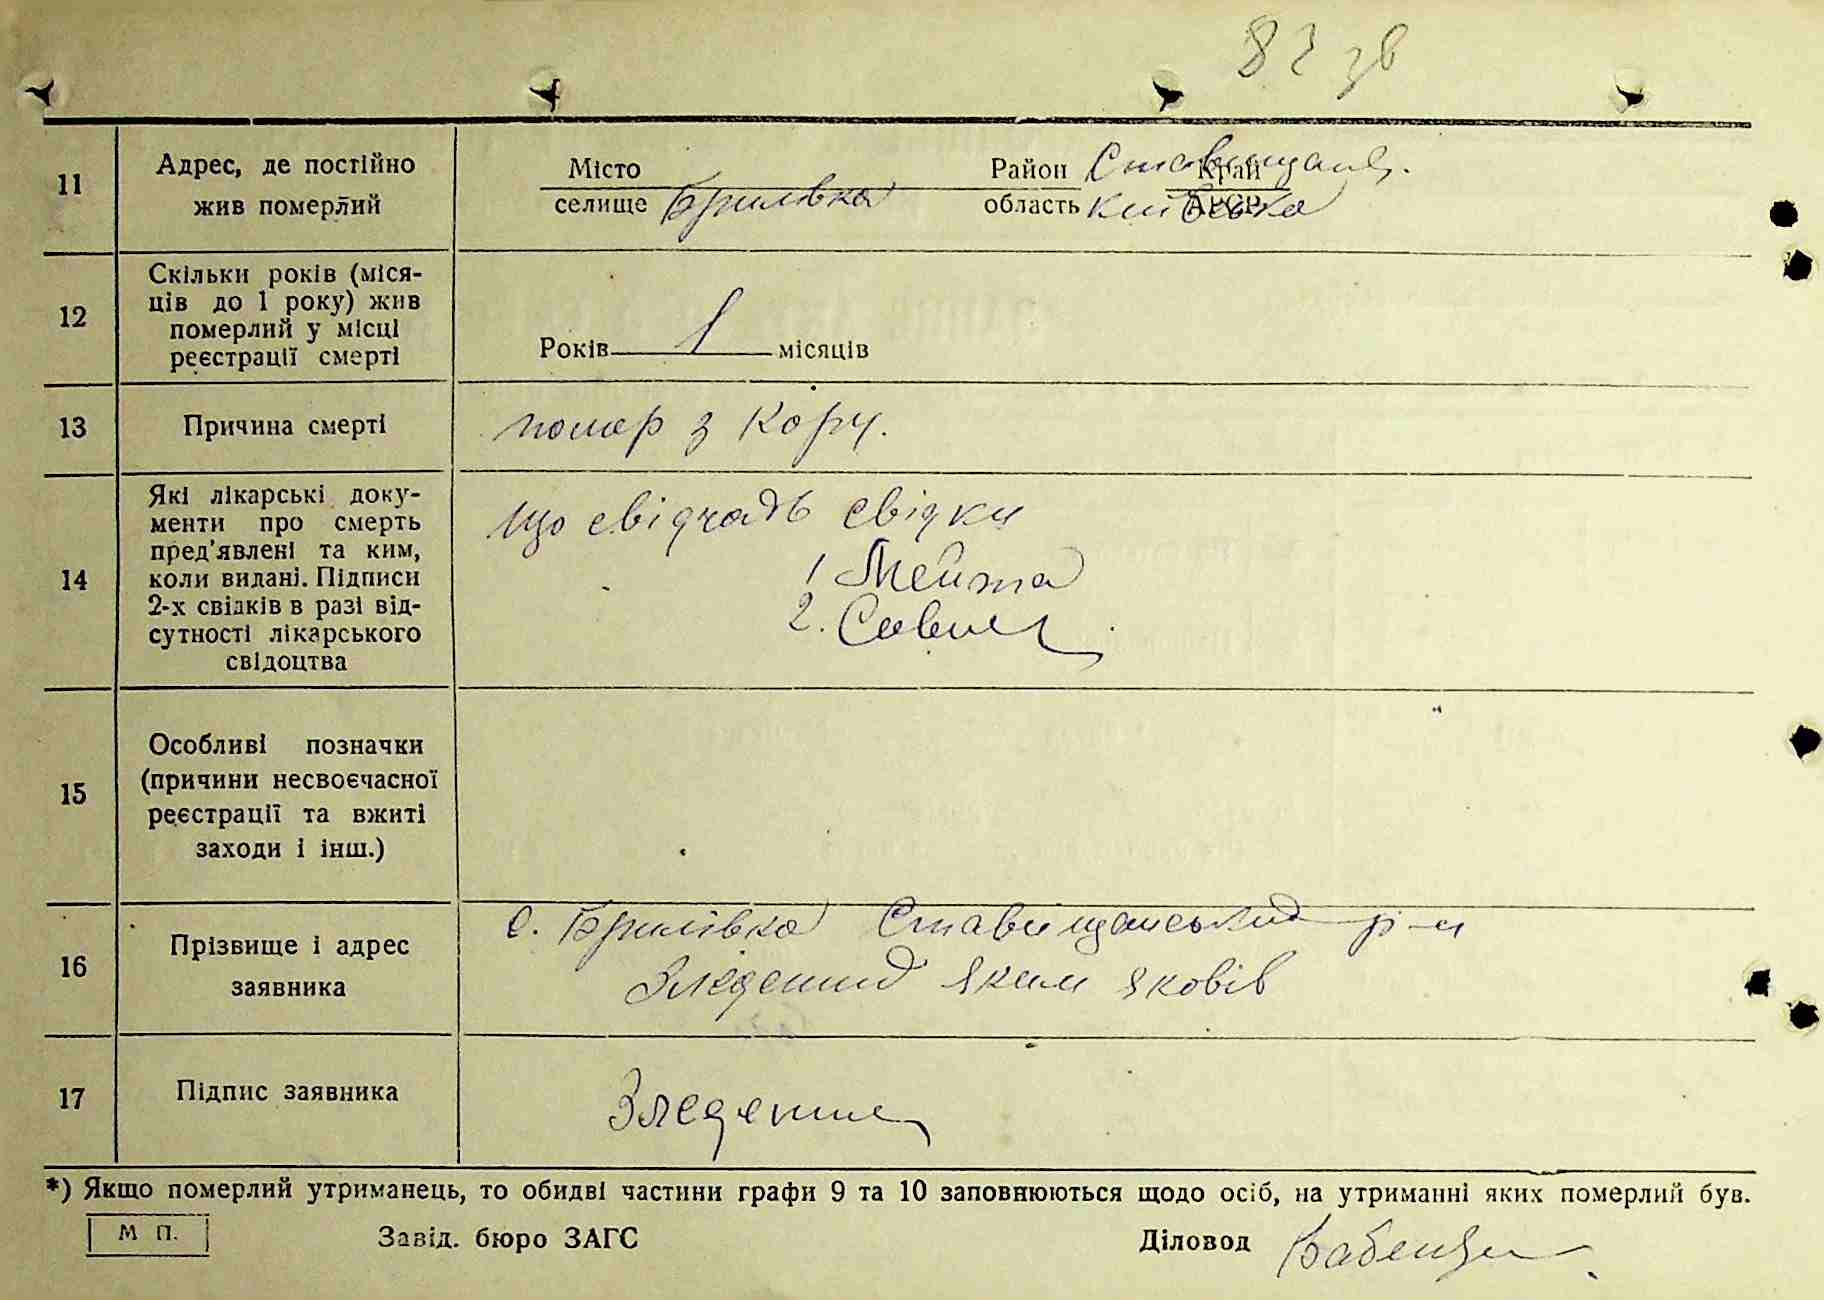 82 зв
11
Адрес, де постійно
жив померлий
Місто
селище Брилівка
Район Ставищанс.
область Київська
Край
АРСР
12
Скільки років (міся-
ців до 1 року) жив
померлий у місці
реєстрації смерті
Років 1 місяців
13
Причина смерті
помер з кору.
14
Які лікарські доку-
менти про смерть
пред'явлені та ким,
коли видані. Підписи
2-х свідків в разі від-
сутності лікарського
свідоцтва
що свідчать свідки
1
2.
15
Особливі позначки
(причини несвоєчасної
реєстрації та вжиті
заходи і інш.)
16
Прізвище і адрес
заявника
с. Брилівка Ставищанський р-н
Яким Яковів
17
Підпис заявника
*) Якщо померлий утриманець, то обидві частини графи 9 та 10 заповнюються щодо осіб, на утриманні яких померлий був.
М П.
Завід. бюро ЗАГС
Діловод